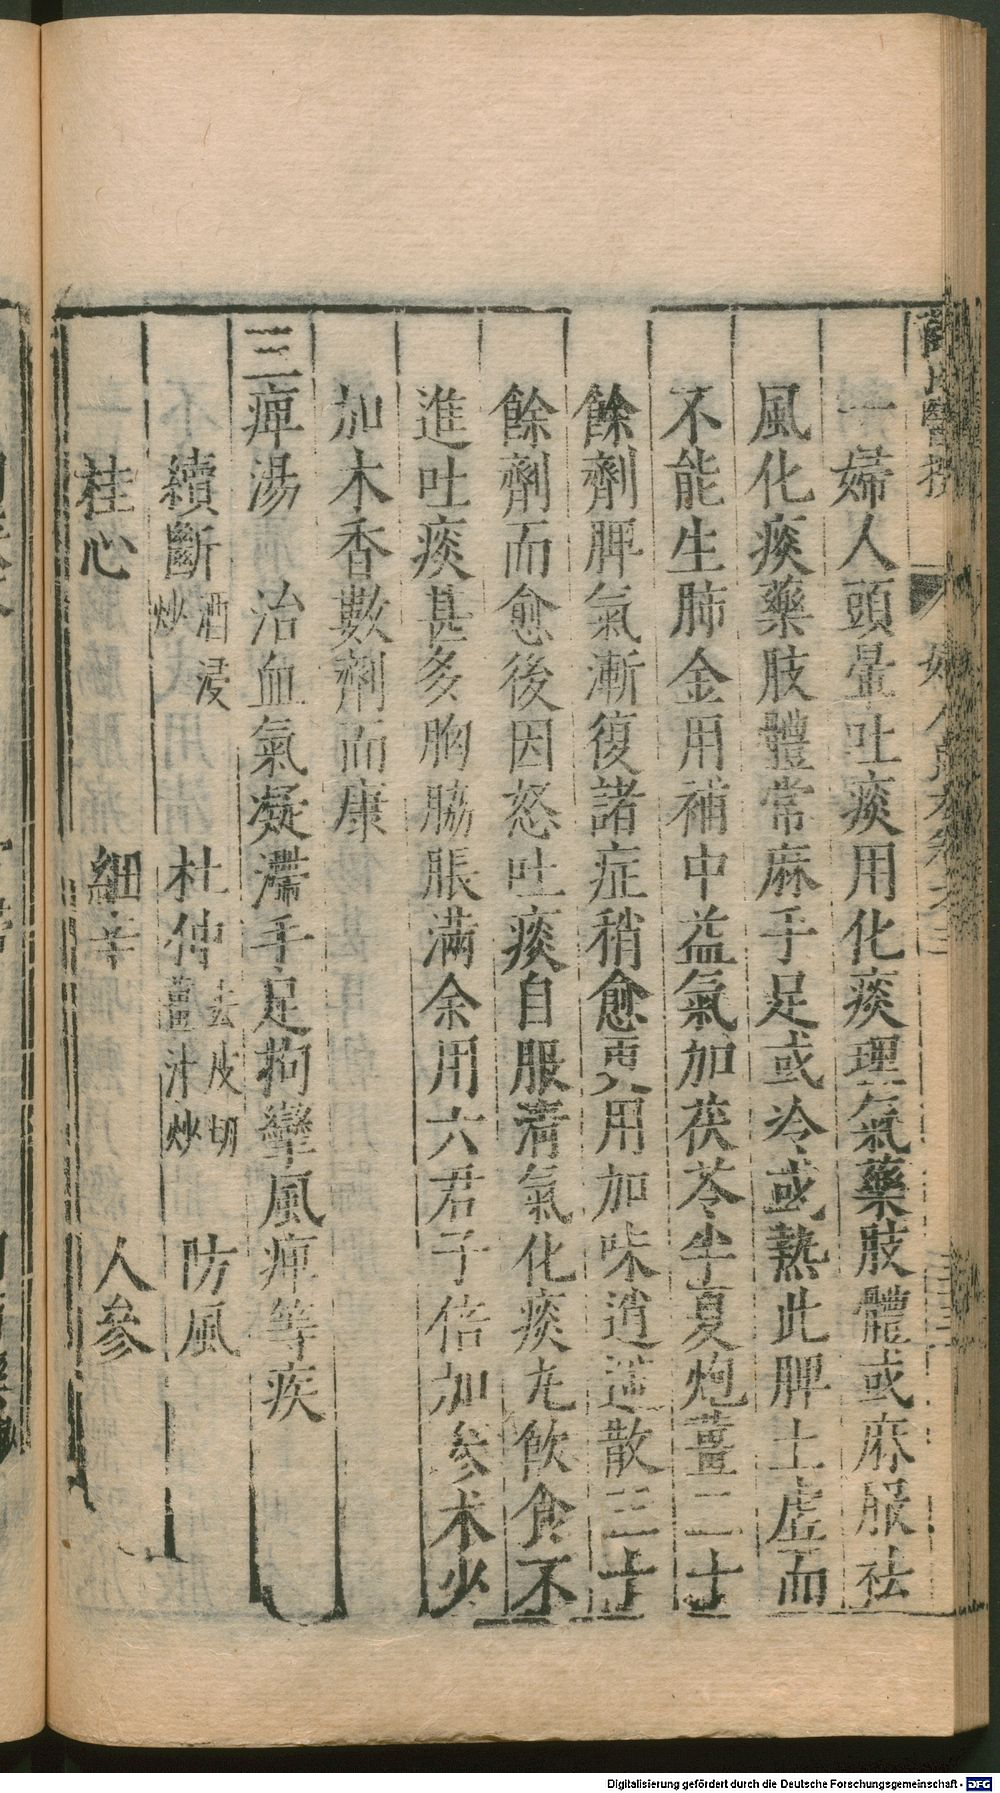 一婦人頭暈吐痰用化痰理氣藥肢體或麻服祛
風化痰藥肢體常麻手足或冷或熱此脾土虛而
不能生肺金用補中益氣加茯苓半夏炮薑二十
餘劑脾氣漸復諸症稍愈更用加味逍遙散三十
餘劑而愈後因怒吐痰自服清氣化痰丸飲食不
進吐痰甚多胸脇脹滿余用六君子倍加參朮少
加木香數劑而康
三痹湯 治血氣凝滯手足拘攣風痹等疾
續斷 酒浸炒 杜仲 去皮切薑汁炒 防風
桂心 細辛 人參
Digitalisierung gefördert durch die Deutsche Forschungsgemeinschaft - DFG